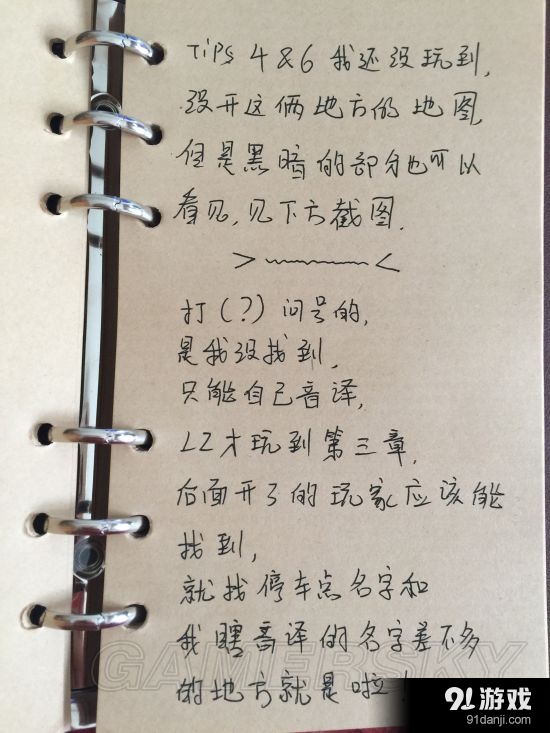 TiPS 4&6 我还没玩到,
没开这俩地方的地图,
但是黑暗的部分也可以
看见,见下方截图.
打(?)问号的,
是我没找到,
只能自己音译,
LZ才玩到第三章,
后面开了的玩家应该能
找到,
就找停车点名字和
我瞎音译的名字差不多
的地方就是啦!
GAMERSKY
91游戏
91danji.com